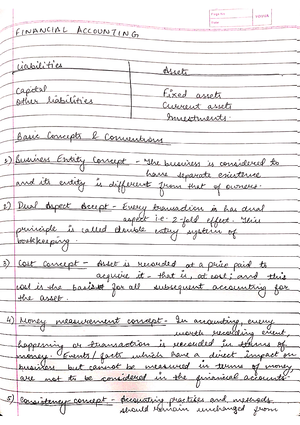 FINANCIAL ACCOUNTING
Liabilities Assets
Capital Fixed assets
Other liabilities Current assets
Investments.
Basic Concepts & Conventions
1) Business Entity Concept - The business is considered to
have separate existence
and its entity is different from that of owners.
2) Dual Aspect - Every transaction in has dual
aspect i.e. 2-fold effect. This
principle is called double entry system of
bookkeeping.
3) Cost Concept - Asset is recorded at a price paid to
acquire it - that is, at cost; and this
cost is the basis for all subsequent accounting for
the asset.
4) Money measurement concept - In accounting every
worth recording event,
happening or transaction is recorded in terms of
money. Events / facts which have a direct impact on
business but cannot be measured in terms of money,
are not to be considered in the financial accounts.
5) Consistency concept - Accounting practices and methods
should remain unchanged from